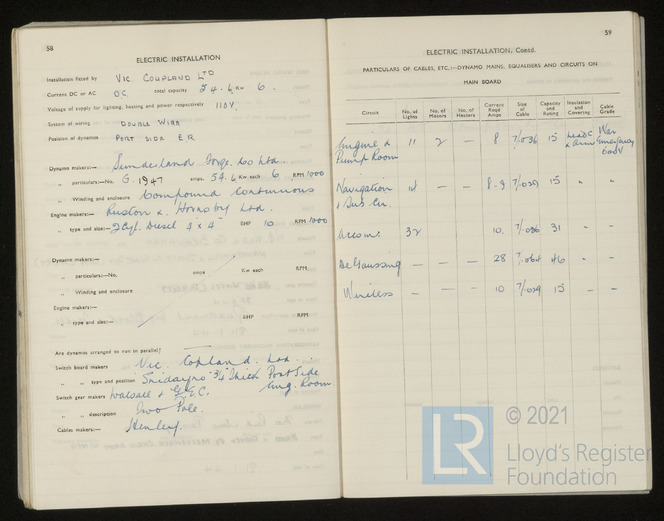 58
ELECTRIC INSTALLATION
Installation fitted by VIC. COUPLAND LTD
Current DC or AC DC. total capacity 54.6 KW 6.
Voltage of supply for lighting, heating and power respectively 110V.
System of wiring DOUBLE WIRE
Position of dynamos PORT SIDE E R
Dynamo makers:— Sunderland Forge. Co Ltd.
„ particulars:—No. G. 1947 amps. 54.6 Kw. each 6 RPM 1000
„ Winding and enclosure Compound Continuous
Engine makers:— Ruston & Hornsby Ltd.
„ type and size:— 2 Cyl. Diesel BHP 10 RPM 1000
Dynamo makers:—
„ particulars:—No. amps Kw each RPM.
„ Winding and enclosure
Engine makers:—
„ type and size:— BHP RPM
Are dynamos arranged to run in parallel?
Switch board makers Vic. Copland. Ltd.
„ „ type and position Sindanyo 3/4 Thick Port Side
Eng. Room
Switch gear makers Walsall & G.E.C.
„ „ description Two Pole.
Cables makers:— Henley.
59
ELECTRIC INSTALLATION, Contd.
PARTICULARS OF CABLES, ETC.:—DYNAMO MAINS, EQUALISERS AND CIRCUITS ON
MAIN BOARD
Circuit No. of Lights No. of Motors No. of Heaters Current Reqd Amps Size of Cable Capacity and Rating Insulation and Covering Cable Grade
Engine & Pump Room 11 2 — 8 7/036 15 Lead C & Arm War Emergency
Navigation & Sub Cir. 18 — — 8.9 7/029 15 „ „
Accom: 32 10. 7/036 31 — —
De Gaussing — 28 7/.064 46 — —
Wireless — — 10 7/029 15 — —
LR
© 2021
Lloyd's Register
Foundation